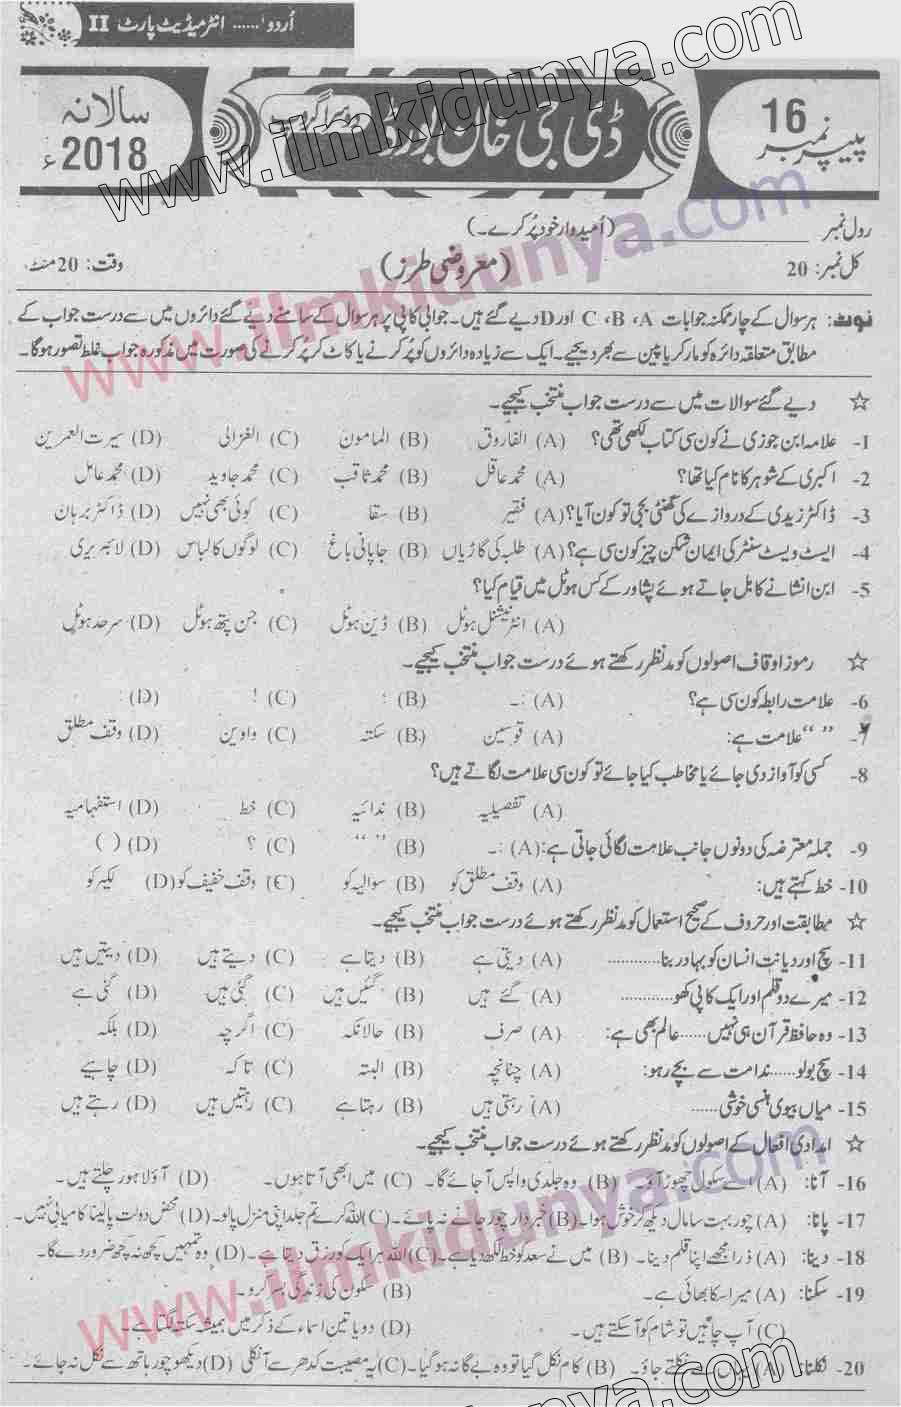 اُردو ...... انٹرمیڈیٹ پارٹ II
پیپر نمبر 16
ڈی جی خان بورڈ
دوسرا گروپ
سالانہ 2018ء
رول نمبر ____________ (اُمیدوار خود پُر کرے۔)
کل نمبر: 20 (معروضی طرز) وقت: 20 منٹ
نوٹ: ہر سوال کے چار ممکنہ جوابات A، B، C اور D دیے گئے ہیں۔ جوابی کاپی پر ہر سوال کے سامنے دیے گئے دائروں میں سے درست جواب کے
مطابق متعلقہ دائرہ کو مارکر یا پین سے بھر دیجیے۔ ایک سے زیادہ دائروں کو پُر کرنے یا کاٹ کر پُر کرنے کی صورت میں مذکورہ جواب غلط تصور ہوگا۔
☆ دیے گئے سوالات میں سے درست جواب منتخب کیجیے۔
1- علامہ ابن جوزی نے کون سی کتاب لکھی تھی؟ (A) الفاروق (B) المامون (C) الغزالی (D) سیرت العمرین
2- اکبری کے شوہر کا نام کیا تھا؟ (A) محمد عاقل (B) محمد ثاقب (C) محمد جاوید (D) محمد عامل
3- ڈاکٹر زیدی کے دروازے کی گھنٹی بجی تو کون آیا؟ (A) فقیر (B) سقا (C) کوئی بھی نہیں (D) ڈاکٹر برہان
4- ایسٹ ویسٹ سنٹر کی ایمان شکن چیز کون سی ہے؟ (A) طلبہ کی گاڑیاں (B) جاپانی باغ (C) لوگوں کا لباس (D) لائبریری
5- ابن انشا نے کابل جاتے ہوئے پشاور کے کس ہوٹل میں قیام کیا؟
(A) انٹرنیشنل ہوٹل (B) ڈین ہوٹل (C) جن پتھ ہوٹل (D) سرحد ہوٹل
☆ رموز اوقاف اصولوں کو مدنظر رکھتے ہوئے درست جواب منتخب کیجیے۔
6- علامت رابطہ کون سی ہے؟ (A) :۔ (B) ؛ (C) ! (D) :
7- " " علامت ہے: (A) قوسین (B) سکتہ (C) واوین (D) وقف مطلق
8- کسی کو آواز دی جائے یا مخاطب کیا جائے تو کون سی علامت لگاتے ہیں؟
(A) تفصیلیہ (B) ندائیہ (C) خط (D) استفہامیہ
9- جملہ معترضہ کی دونوں جانب علامت لگائی جاتی ہے: (A) :۔ (B) " " (C) ؟ (D) ( )
10- خط کہتے ہیں: (A) وقف مطلق کو (B) سوالیہ کو (C) وقف خفیف کو (D) لکیر کو
☆ مطابقت اور حروف کے صحیح استعمال کو مدنظر رکھتے ہوئے درست جواب منتخب کیجیے۔
11- سچ اور دیانت انسان کو بہادر بنا ............ (A) دیتی ہے (B) دیتا ہے (C) دیتے ہیں (D) دیتیں ہیں
12- میرے دو قلم اور ایک کاپی کھو ............ (A) گئے ہیں (B) گئیں ہیں (C) گئی ہیں (D) گئی ہے
13- وہ حافظ قرآن ہی نہیں ...... عالم بھی ہے: (A) صرف (B) حالانکہ (C) اگرچہ (D) بلکہ
14- سچ بولو ...... ندامت سے بچے رہو: (A) چنانچہ (B) البتہ (C) تاکہ (D) چاہیے
15- میاں بیوی ہنسی خوشی ...... (A) رہتی ہیں (B) رہتا ہے (C) رہتیں ہیں (D) رہتے ہیں
☆ امدادی افعال کے اصولوں کو مدنظر رکھتے ہوئے درست جواب منتخب کیجیے۔
16- آنا: (A) اسے سکول چھوڑ آؤ۔ (B) وہ جلدی واپس آ جائے گا۔ (C) میں ابھی آتا ہوں۔ (D) آؤ لاہور چلتے ہیں۔
17- پانا: (A) چور بہت سا مال دیکھ کر خوش ہوا۔ (B) خبردار چور جانے نہ پائے۔ (C) اللہ کرے تم جلد اپنی منزل پا لو۔ (D) محض دولت پا لینا کامیابی نہیں۔
18- دینا: (A) ذرا مجھے اپنا قلم دینا۔ (B) میں نے سعد کو خط لکھ دیا ہے۔ (C) اللہ ہر ایک کو رزق دیتا ہے۔ (D) وہ تمہیں کچھ نہ کچھ ضرور دے گا۔
19- سکنا: (A) میرا سکا بھائی ہے۔ (B) سکون کی زندگی بسر کرو۔
(C) آپ چاہیں تو شام کو آ سکتے ہیں۔ (D) دو یا تین اسماء کے ذکر میں ہمیشہ سکتہ لگتا ہے۔
20- نکلنا: (A) یہاں سے نکلتے جاؤ۔ (B) کام نکل گیا تو وہ بے گانہ ہو گیا۔ (C) یہ مصیبت کدھر سے آ نکلی (D) دیکھو چور ہاتھ سے نکل نہ جائے۔
www.ilmkidunya.com
www.ilmkidunya.com
www.ilmkidunya.com
www.ilmkidunya.com